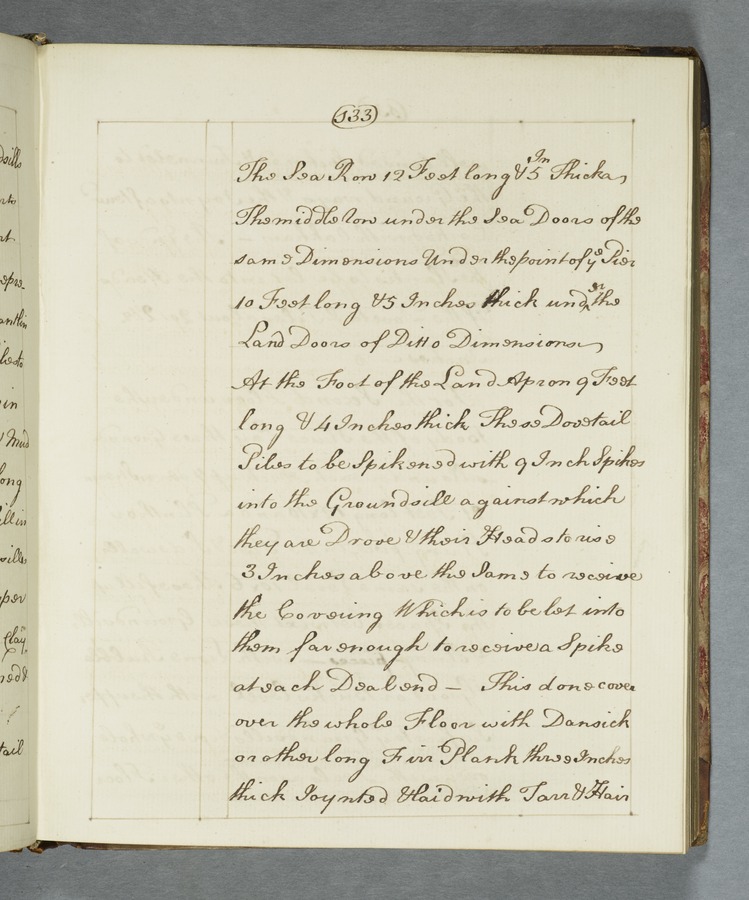 133
The Sea Row 12 Feet long & 5 In Thick
The middle row under the Sea Doors of the
same Dimensions Under the point of ye Pier
10 Feet long & 5 Inches thick under the
Land Doors of Ditto Dimensions
At the Foot of the Land Apron 9 Feet
long & 4 Inches thick These Dovetail
Piles to be Spikened with 9 Inch Spikes
into the Groundsill against which
they are Drove & their Heads to rise
3 Inches above the Same to receive
the Covering Which is to be let into
them far enough to receive a Spike
at each Deal end — This done cover
over the whole Floor with Dansick
or other long Firr Plank three Inches
thick Joynted & laid with Tarr & Hair